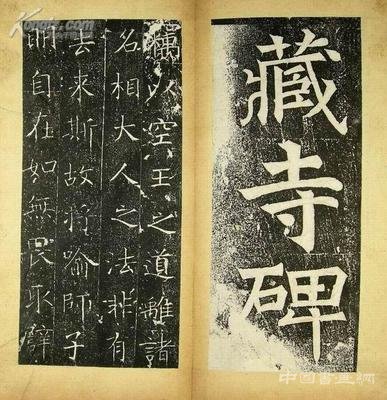 藏寺碑
竊以空王之道離諸
名相大人之法非有
去來斯故將喻師子
明自在如無畏取譬
中国书画網